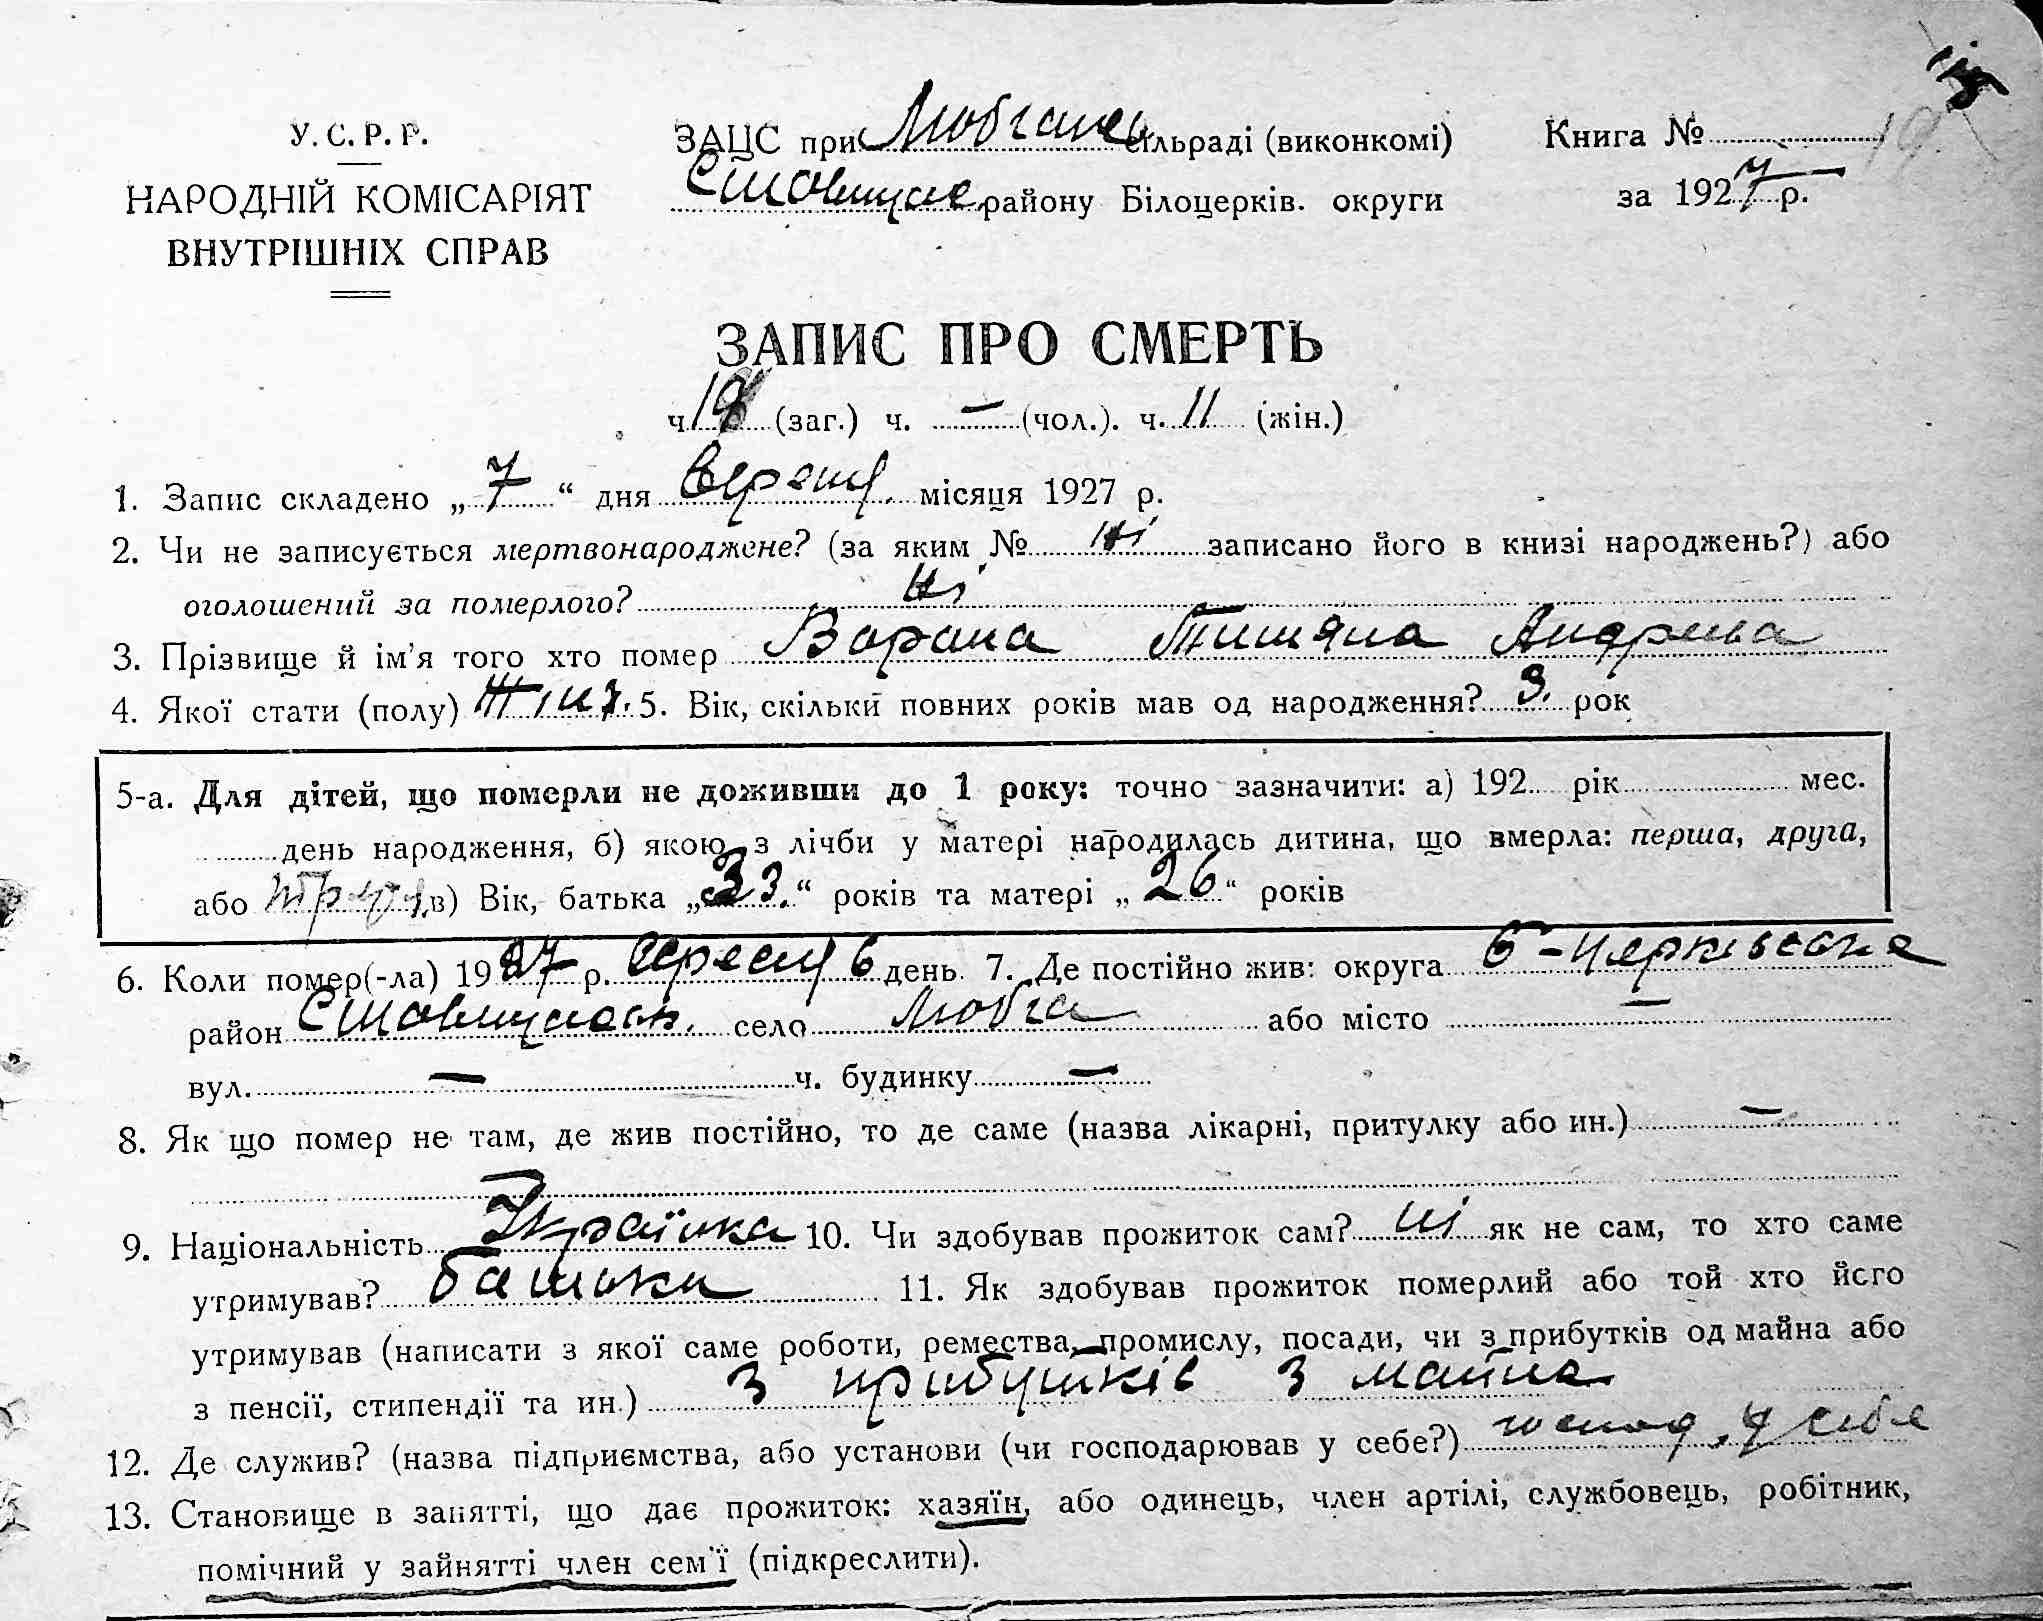 У. С. Р. Р.
НАРОДНІЙ КОМІСАРІЯТ
ВНУТРІШНІХ СПРАВ
ЗАЦС при Любчанс. сільраді (виконкомі)
Ставищан. району Білоцерків. округи
Книга №
за 1927 р.
ЗАПИС ПРО СМЕРТЬ
ч. 19 (заг.) ч. — (чол.). ч. 11 (жін.)
1. Запис складено „ 7 “ дня Вересня місяця 1927 р.
2. Чи не записується мертвонароджене? (за яким № ні записано його в книзі народжень?) або
оголошений за померлого? ні
3. Прізвище й ім'я того хто помер Ворона Титяна Андреева
4. Якої стати (полу) Жіноч. 5. Вік, скільки повних років мав од народження? 3. рок
5-а. Для дітей, що померли не доживши до 1 року: точно зазначити: а) 192 рік мес.
день народження, б) якою з лічби у матері народилась дитина, що вмерла: перша, друга,
або в) Вік, батька „33.“ років та матері „26“ років
6. Коли помер(-ла) 1927 р. Вересня 6 день. 7. Де постійно жив: округа Б-Церківська
район Ставищанськ. село Любча або місто —
вул. — ч. будинку —
8. Як що помер не там, де жив постійно, то де саме (назва лікарні, притулку або ин.) —
9. Національність Українка 10. Чи здобував прожиток сам? ні як не сам, то хто саме
утримував? батьки 11. Як здобував прожиток померлий або той хто його
утримував (написати з якої саме роботи, ремества, промислу, посади, чи з прибутків од майна або
з пенсії, стипендії та ин.) З прибутків з майна
12. Де служив? (назва підприємства, або установи (чи господарював у себе?) господ. у себе
13. Становище в занятті, що дає прожиток: хазяїн, або одинець, член артілі, службовець, робітник,
помічний у зайнятті член сем'ї (підкреслити).